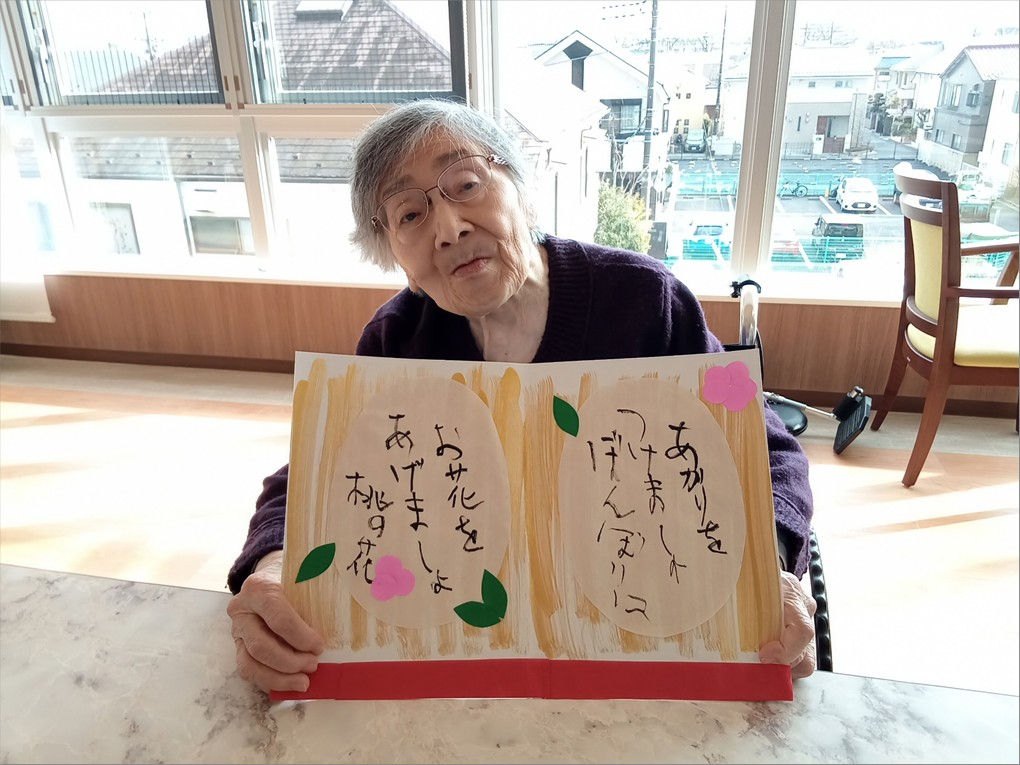 あかりを
つけましょ
ぼんぼりに
お花を
あげましょ
桃の花